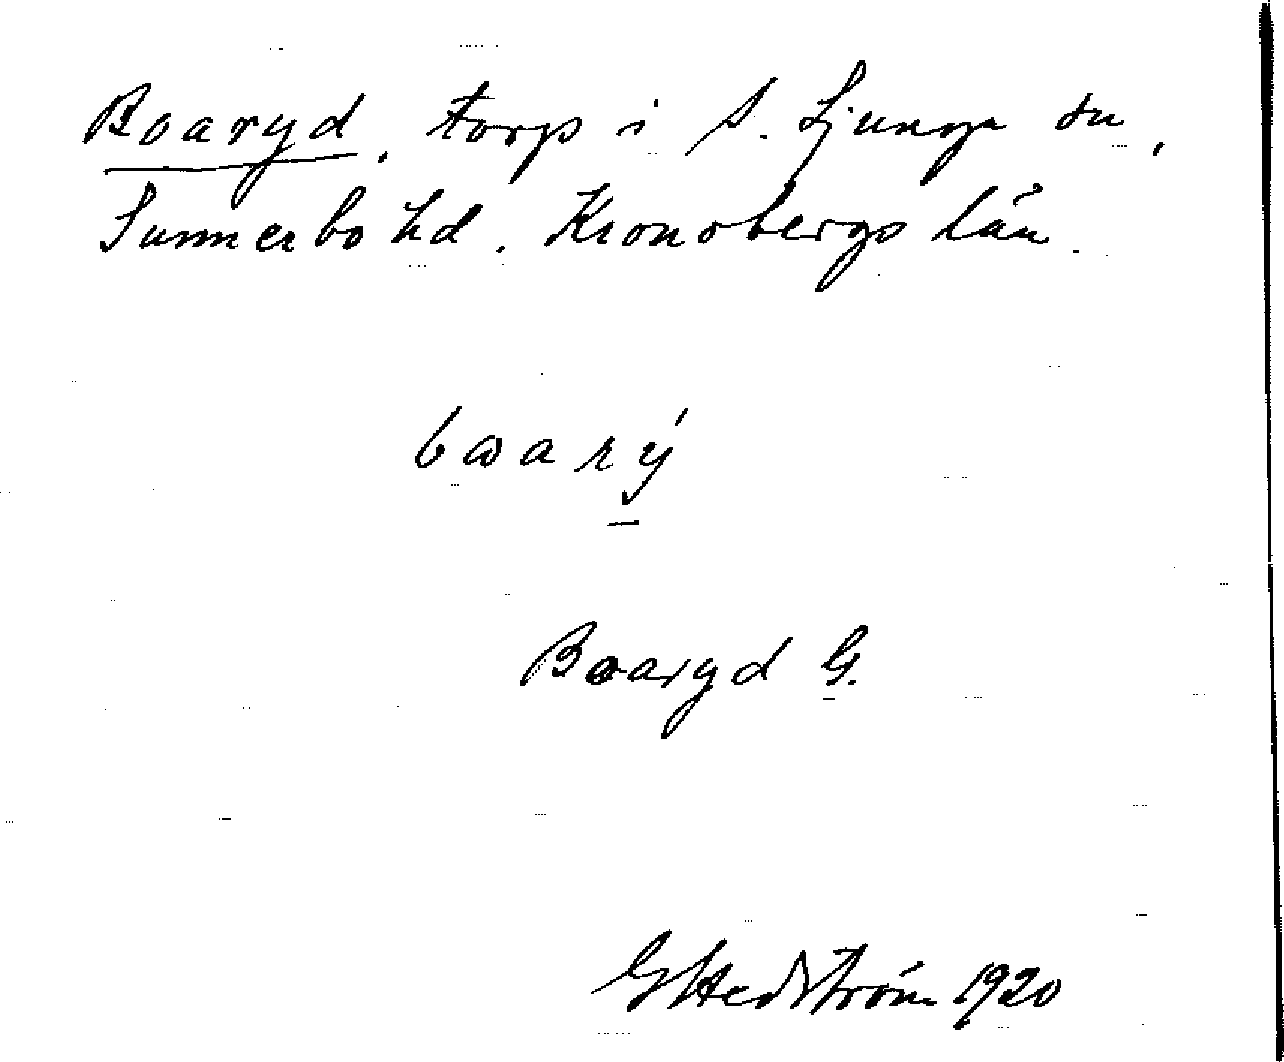 Boaryd, torp i S. Ljunga sn,
Sunnerbo hd. Kronobergs län.
bωarý
Boaryd G.
G Hedström 1920